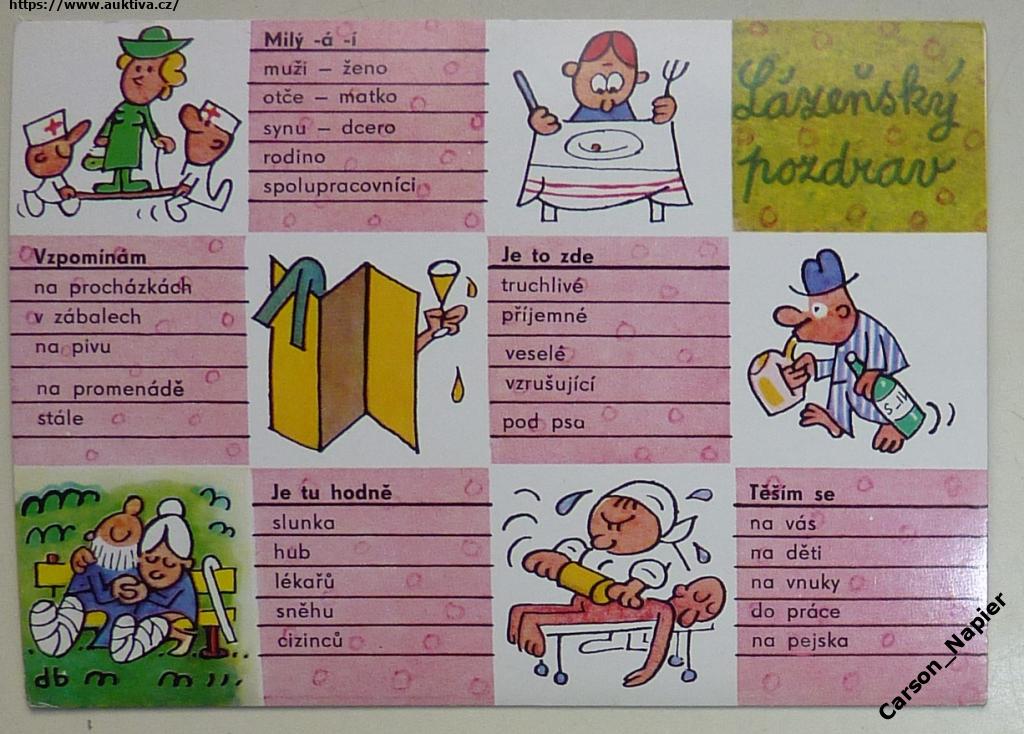 https://www.auktiva.cz/
Milý -á -í
muži – ženo
otče – matko
synu – dcero
rodino
spolupracovníci
Lázeňský
pozdrav
Vzpomínám
na procházkách
v zábalech
na pivu
na promenádě
stále
Je to zde
truchlivé
příjemné
veselé
vzrušující
pod psa
S-IV
Je tu hodně
slunka
hub
lékařů
sněhu
cizinců
Těším se
na vás
na děti
na vnuky
do práce
na pejska
db
Carson_Napier